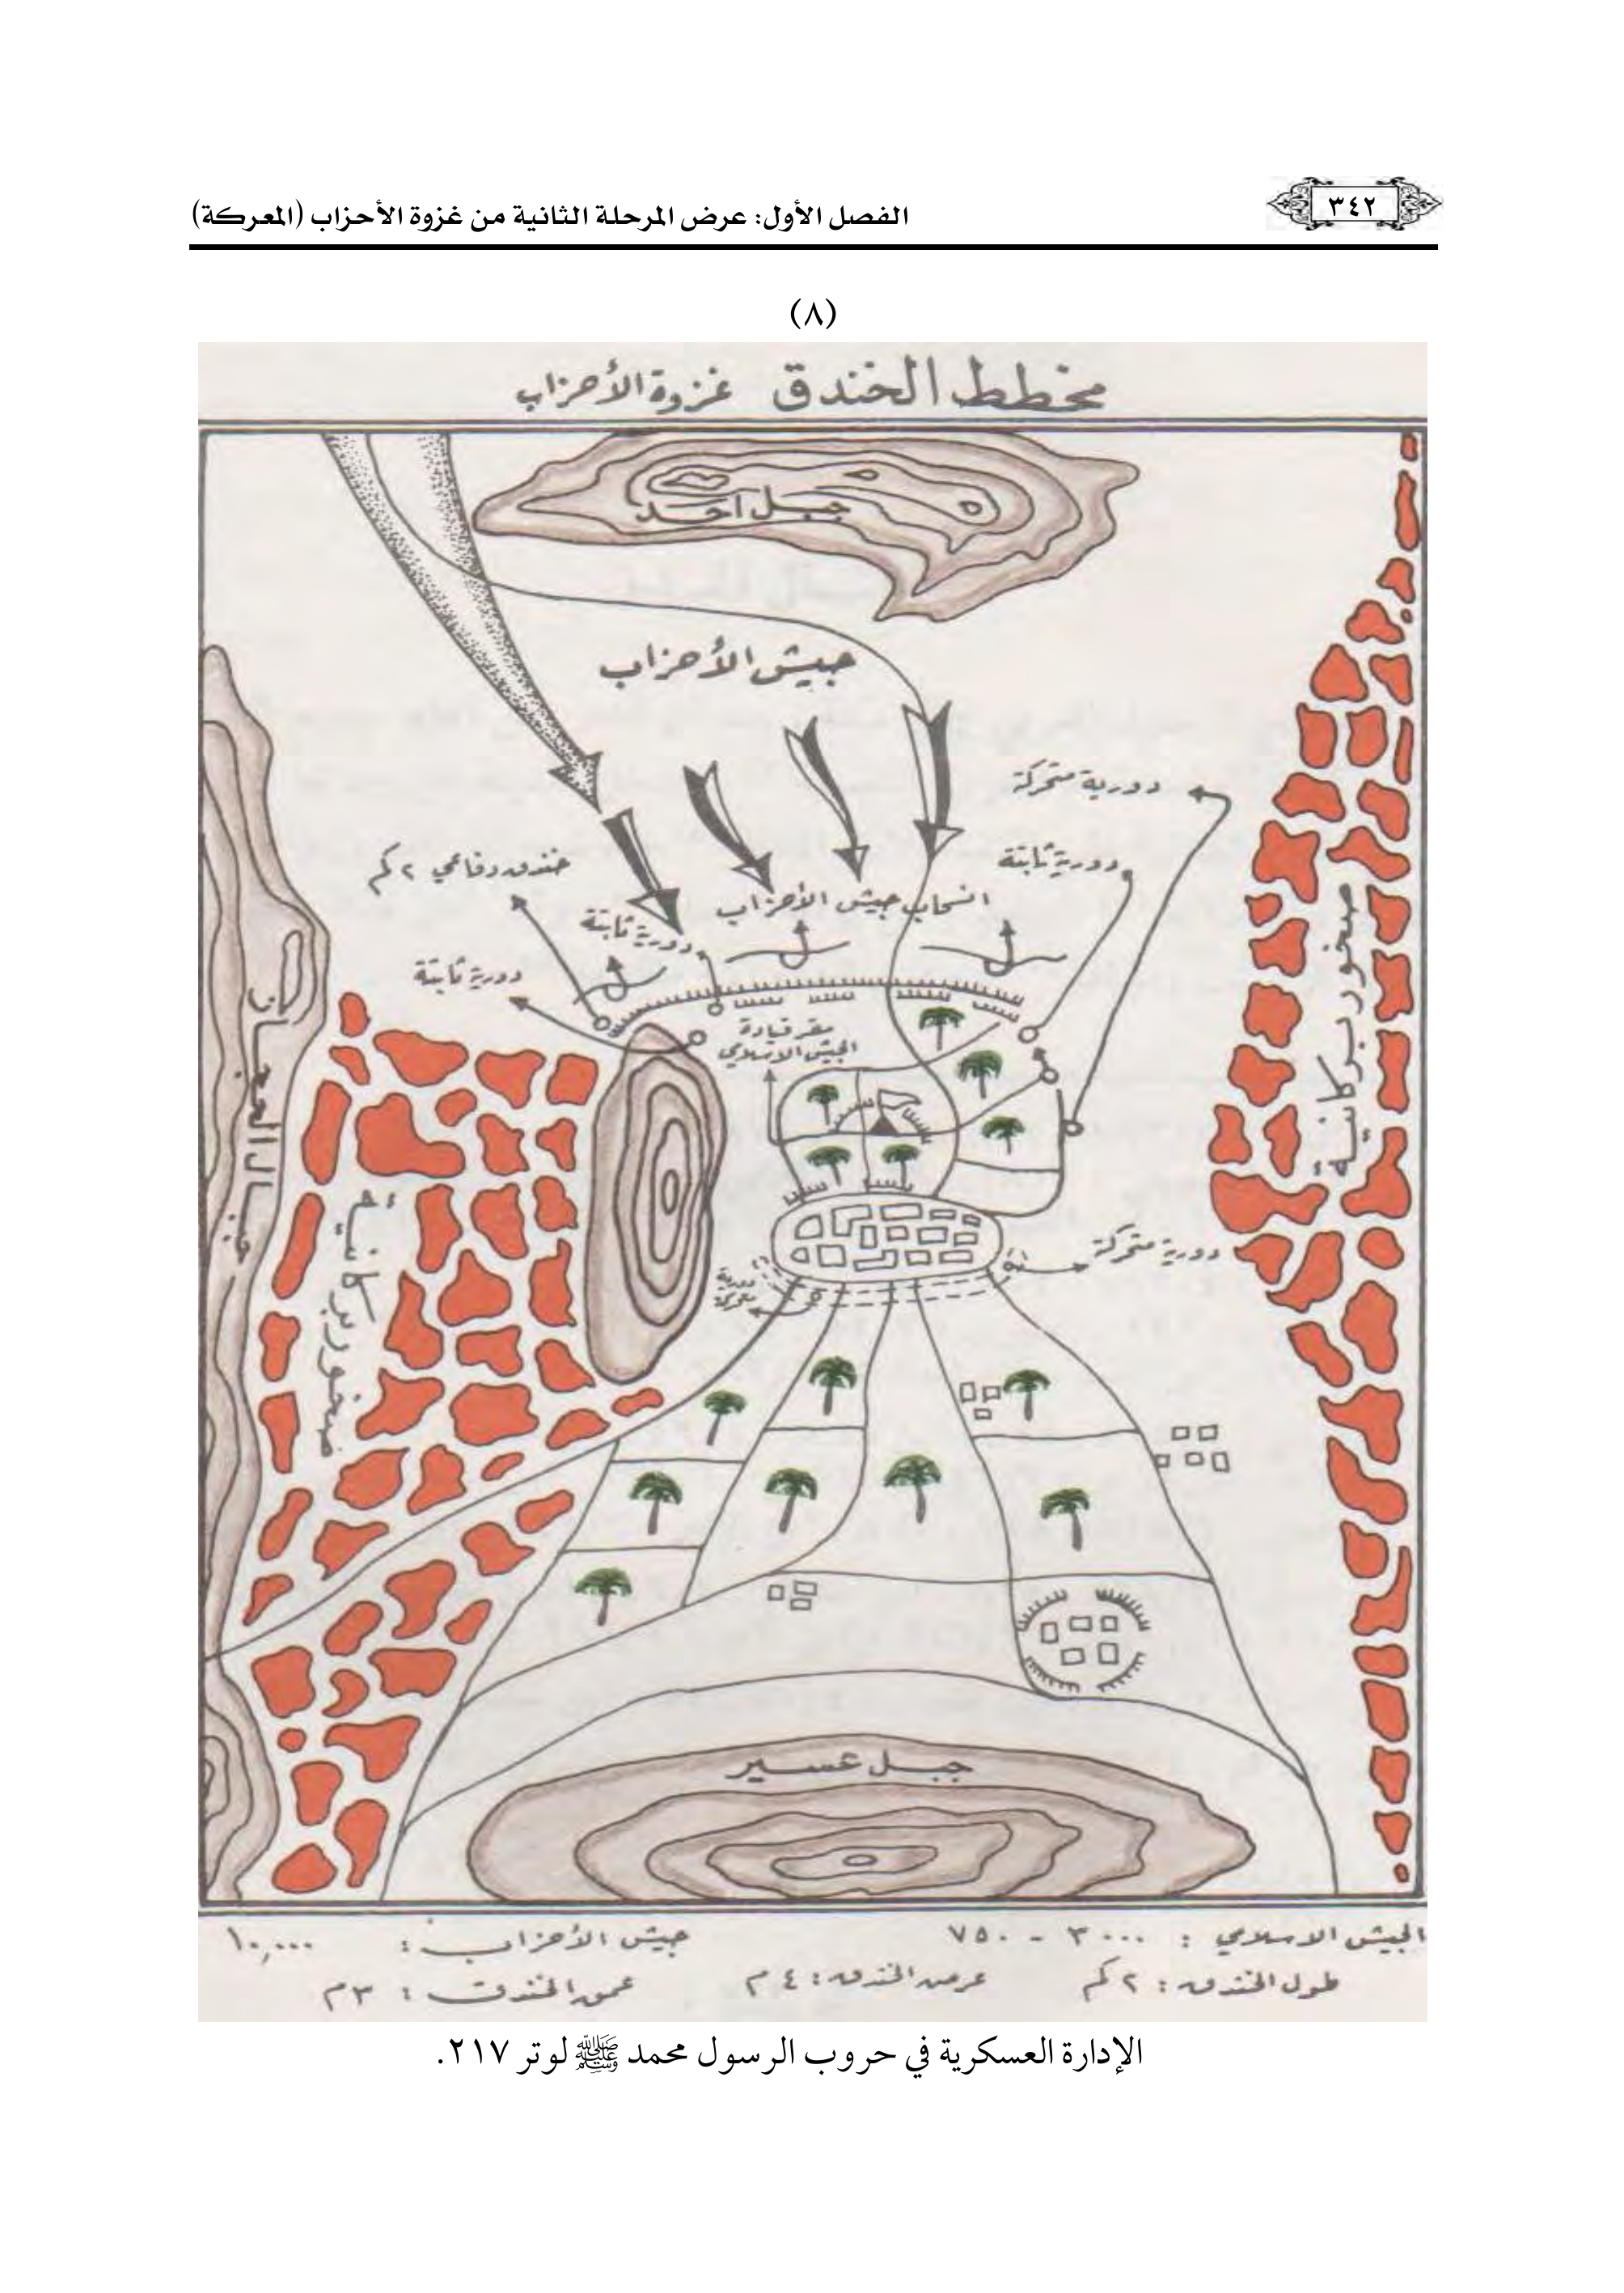 ٣٤٢
الفصل الأول: عرض المرحلة الثانية من غزوة الأحزاب (المعركة)
(٨)
مخطط الخندق غزوة الأحزاب
جبل احد
جيش الأحزاب
دورية متحركة
دورية ثابتة
خندق دفاعي ٢ كم
انسحاب جيش الأحزاب
دورية ثابتة
دورية ثابتة
مقر قيادة
الجيش الاسلامي
صخور بركانية
جبال الحجاز
صخور بركانية
دورية متحركة
دورية
متحركة
جبل عسير
الجيش الاسلامي : ٣٠٠٠ - ٧٥٠
جيش الأحزاب : ١٠,٠٠٠
طول الخندق : ٢ كم
عرض الخندق : ٤ م
عمق الخندق : ٣ م
الإدارة العسكرية في حروب الرسول محمد ﷺ لوتر ٢١٧.